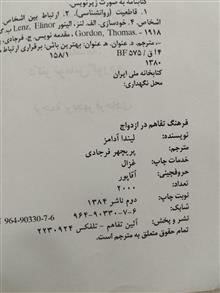 کتابنامه به صورت زیرنویس.
۱. قاطعیت (روانشناسی). ۲. ارتباط بین اشخاص.
اشخاص. ۴. خودسازی. الف. لنز، الینور Lenz, Elinor
۱۹۱۸ - Gordon, Thomas. مقدمه‌نویس. ج. فرجادی،
-، مترجم. د. عنوان. ه. عنوان: بهترین باش: برقراری ارتباط
۴ آ ق / BF ۵۷۵
۱۳۸۰
کتابخانه ملی ایران
محل نگهداری:
فرهنگ تفاهم در ازدواج
نویسنده: لیندا آدامز
مترجم: پریچهر فرجادی
خدمات چاپ: غزال
حروفچینی: آقاپور
تعداد: ۲۰۰۰
نوبت چاپ: دوم ناشر ۱۳۸۴
شابک: ۹۶۴-۹۰۳۳۰-۷-۶
964-90330-7-6
نشر و پخش: آئین تفاهم - تلفکس ۲۲۳۰۹۲۴
تمام حقوق متعلق به مترجم است.